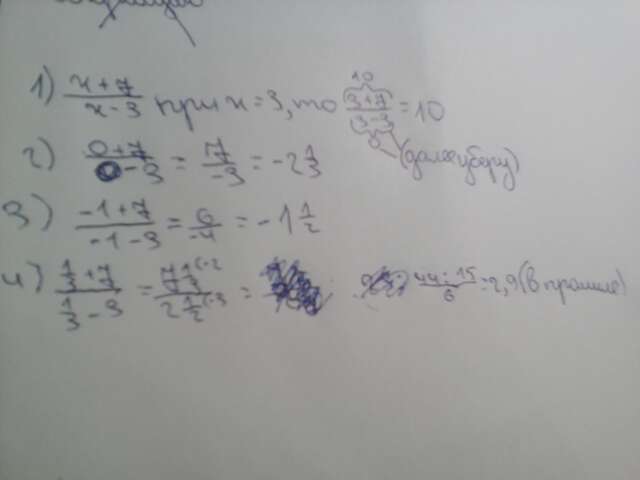 1) (x+7)/(x-3) при x=3, то (3+7)/(3-3) = 10
10
0
(далее уберу)
2) (0+7)/(0-3) = 7/-3 = -2 1/3
3) (-1+7)/(-1-3) = 6/-4 = -1 1/2
4) (1/3+7)/(1/3-3) = (7 1/3)/(2 1/2) = 44:15/6 = 2,9